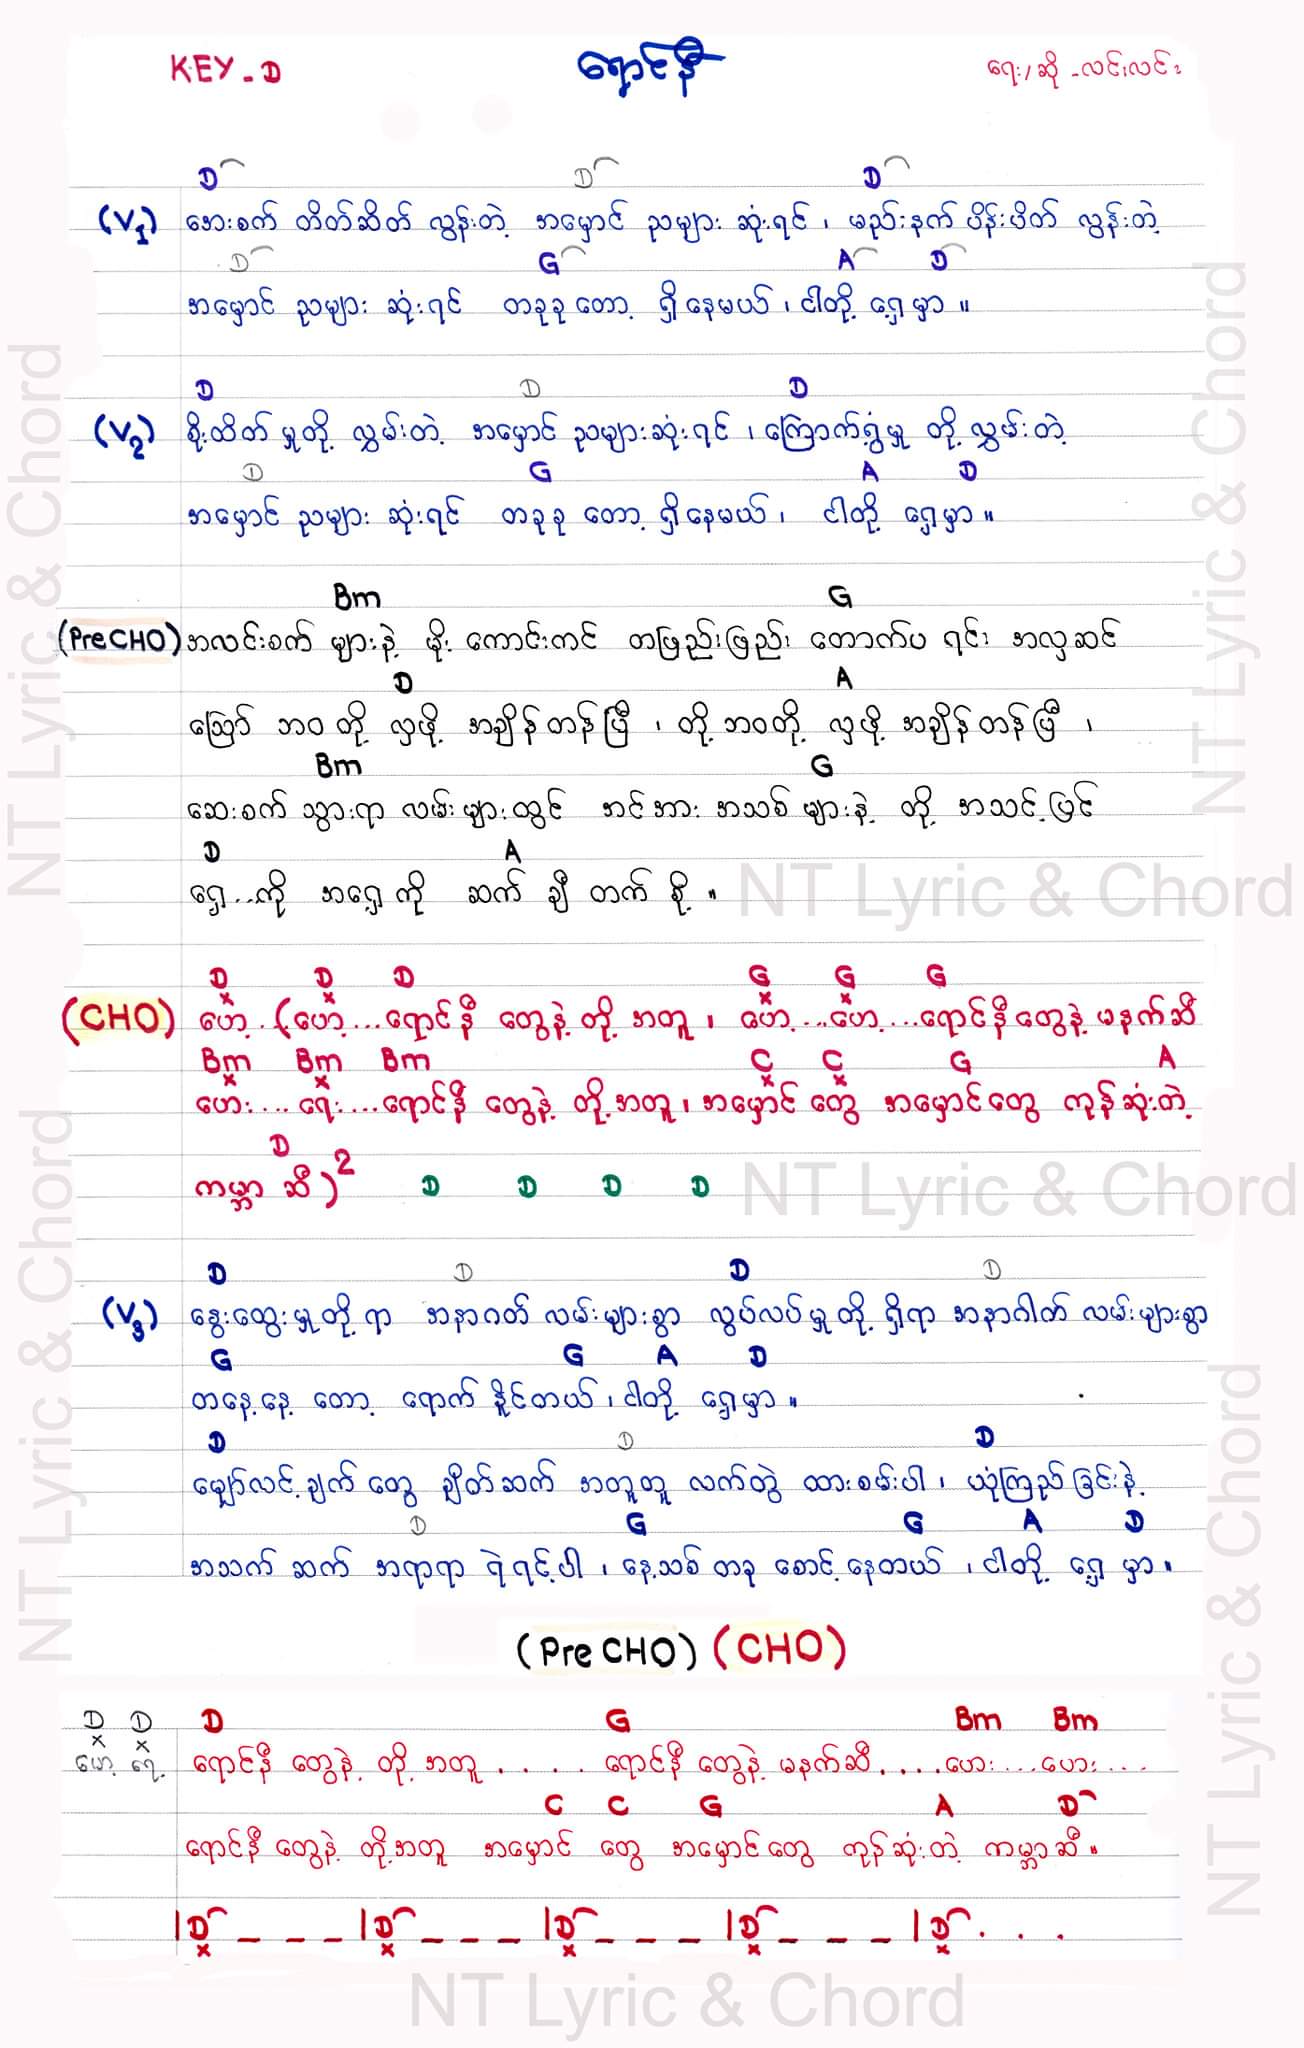 KEY - D
ရောင်နီ
ရေး/ဆို - လင်းလင်း
D D D
(V1) အေးစက် တိတ်ဆိတ် လွန်းတဲ့ အမှောင် ညများ ဆုံးရင် ၊ မည်းနက် ပိန်းပိတ် လွန်းတဲ့
D G A D
အမှောင် ညများ ဆုံးရင် တခုခု တော့ ရှိနေမယ် ၊ ငါတို့ ရှေ့မှာ ။
D D D
(V2) စိုးထိတ် မှုတို့ လွှမ်းတဲ့ အမှောင် ညများဆုံးရင် ၊ ကြောက်ရွံ့မှု တို့ လွှမ်းတဲ့
D G A D
အမှောင် ညများ ဆုံးရင် တခုခု တော့ ရှိနေမယ် ၊ ငါတို့ ရှေ့မှာ ။
Bm G
(Pre CHO) အလင်းစက် များနဲ့ မိုး ကောင်းကင် တဖြည်းဖြည်း တောက်ပ ရင်း အလှဆင်
D A
ဩော် ဘဝ တို့ လှဖို့ အချိန်တန်ပြီ ၊ တို့ ဘဝတို့ လှဖို့ အချိန်တန်ပြီ ၊
Bm G
ဆေးစက် သွားရာ လမ်းများထွင် အင်အား အသစ်များနဲ့ တို့ အသင့်ပြင်
D A
ရှေ့..ကို အရှေ့ကို ဆက် ချီ တက် စို့ ။
NT Lyric & Chord
D D D G G G
x x x x
(CHO) ဟေ့.(ဟေ့...ရောင်နီ တွေနဲ့ တို့ အတူ ၊ ဟေ့...ဟေ့...ရောင်နီတွေနဲ့ မနက်ဆီ
Bm Bm Bm C C G A
x x x x
ဟေး....ရေး....ရောင်နီ တွေနဲ့ တို့အတူ ၊ အမှောင် တွေ အမှောင်တွေ ကုန်ဆုံးတဲ့
D
ကမ္ဘာ ဆီ)2 D D D D
NT Lyric & Chord
D D D D
(V3) နွေးထွေးမှုတို့ ရာ အနာဂတ် လမ်းများစွာ လွပ်လပ်မှုတို့ ရှိရာ အနာဂါတ် လမ်းများစွာ
G G A D
တနေ့နေ့ တော့ ရောက် နိူင်တယ် ၊ ငါတို့ ရှေ့မှာ ။
D D D
မျှော်လင့်ချက် တွေ ချိတ်ဆက် အတူတူ လက်တွဲ ထားစမ်းပါ ၊ ယုံကြည်ခြင်းနဲ့
D G G A D
အသက် ဆက် အရာရာ ရဲရင့်ပါ ၊ နေ့သစ် တခု စောင့်နေတယ် ၊ ငါတို့ ရှေ့ မှာ ။
(Pre CHO) (CHO)
D D D G Bm Bm
x x
ဟေ့ ရေ့ ရောင်နီ တွေနဲ့ တို့ အတူ..... ရောင်နီ တွေနဲ့ မနက်ဆီ....ဟေး...ဟေး...
C C G A D
ရောင်နီ တွေနဲ့ တို့အတူ အမှောင် တွေ အမှောင်တွေ ကုန်ဆုံးတဲ့ ကမ္ဘာဆီ ။
|D _ _ _ |D _ _ _ |D _ _ _ |D _ _ _ |D . . .
x x x x x
NT Lyric & Chord
NT Lyric & Chord
NT Lyric & Chord
NT Lyric & Chord
NT Lyric & Chord